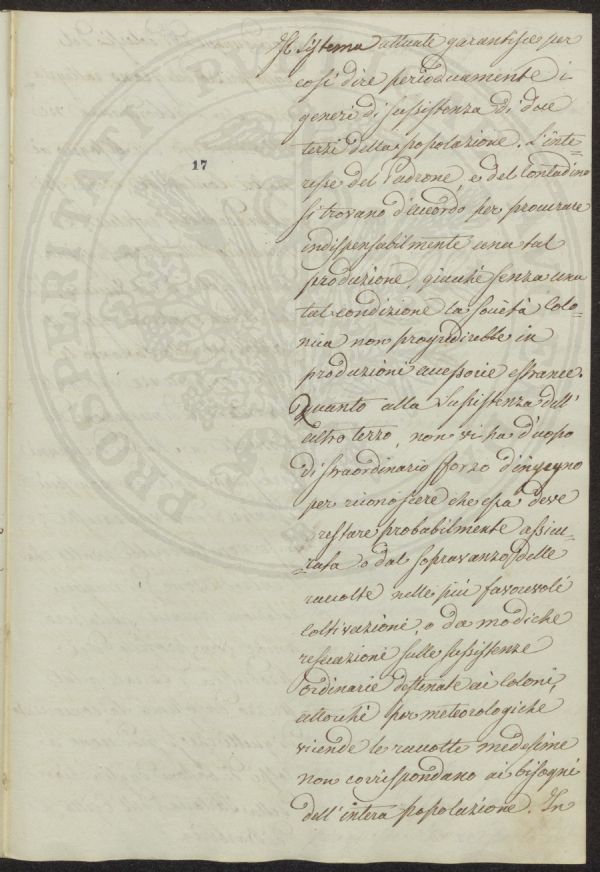 Il sistema attuale garantisce per
così dire periodicamente i
generi di sussistenza di due
terzi della popolazione. L'inte-
resse del Padrone, e del Contadino
si trovano d'accordo per procurare
indispensabilmente una tal
produzione, giacchè senza una
tal condizione la Società Colo-
nica non progredirebbe in
produzioni accessorie estranee.
Quanto alla Sussistenza dell'
altro terzo, non vi ha d'uopo
di straordinario sforzo d'ingegno
per riconoscere che essa deve
restare probabilmente assicu-
rata o dal sopravanzo delle
raccolte nelle più favorevoli
Coltivazioni, o da modiche
resecazioni sulle sussistenze
Ordinarie destinate ai Coloni,
allorchè per meteorologiche
vicende le raccolte medesime
non corrispondano ai bisogni
dell'intera popolazione. In
17
PROSPERITATI PUBLICAE